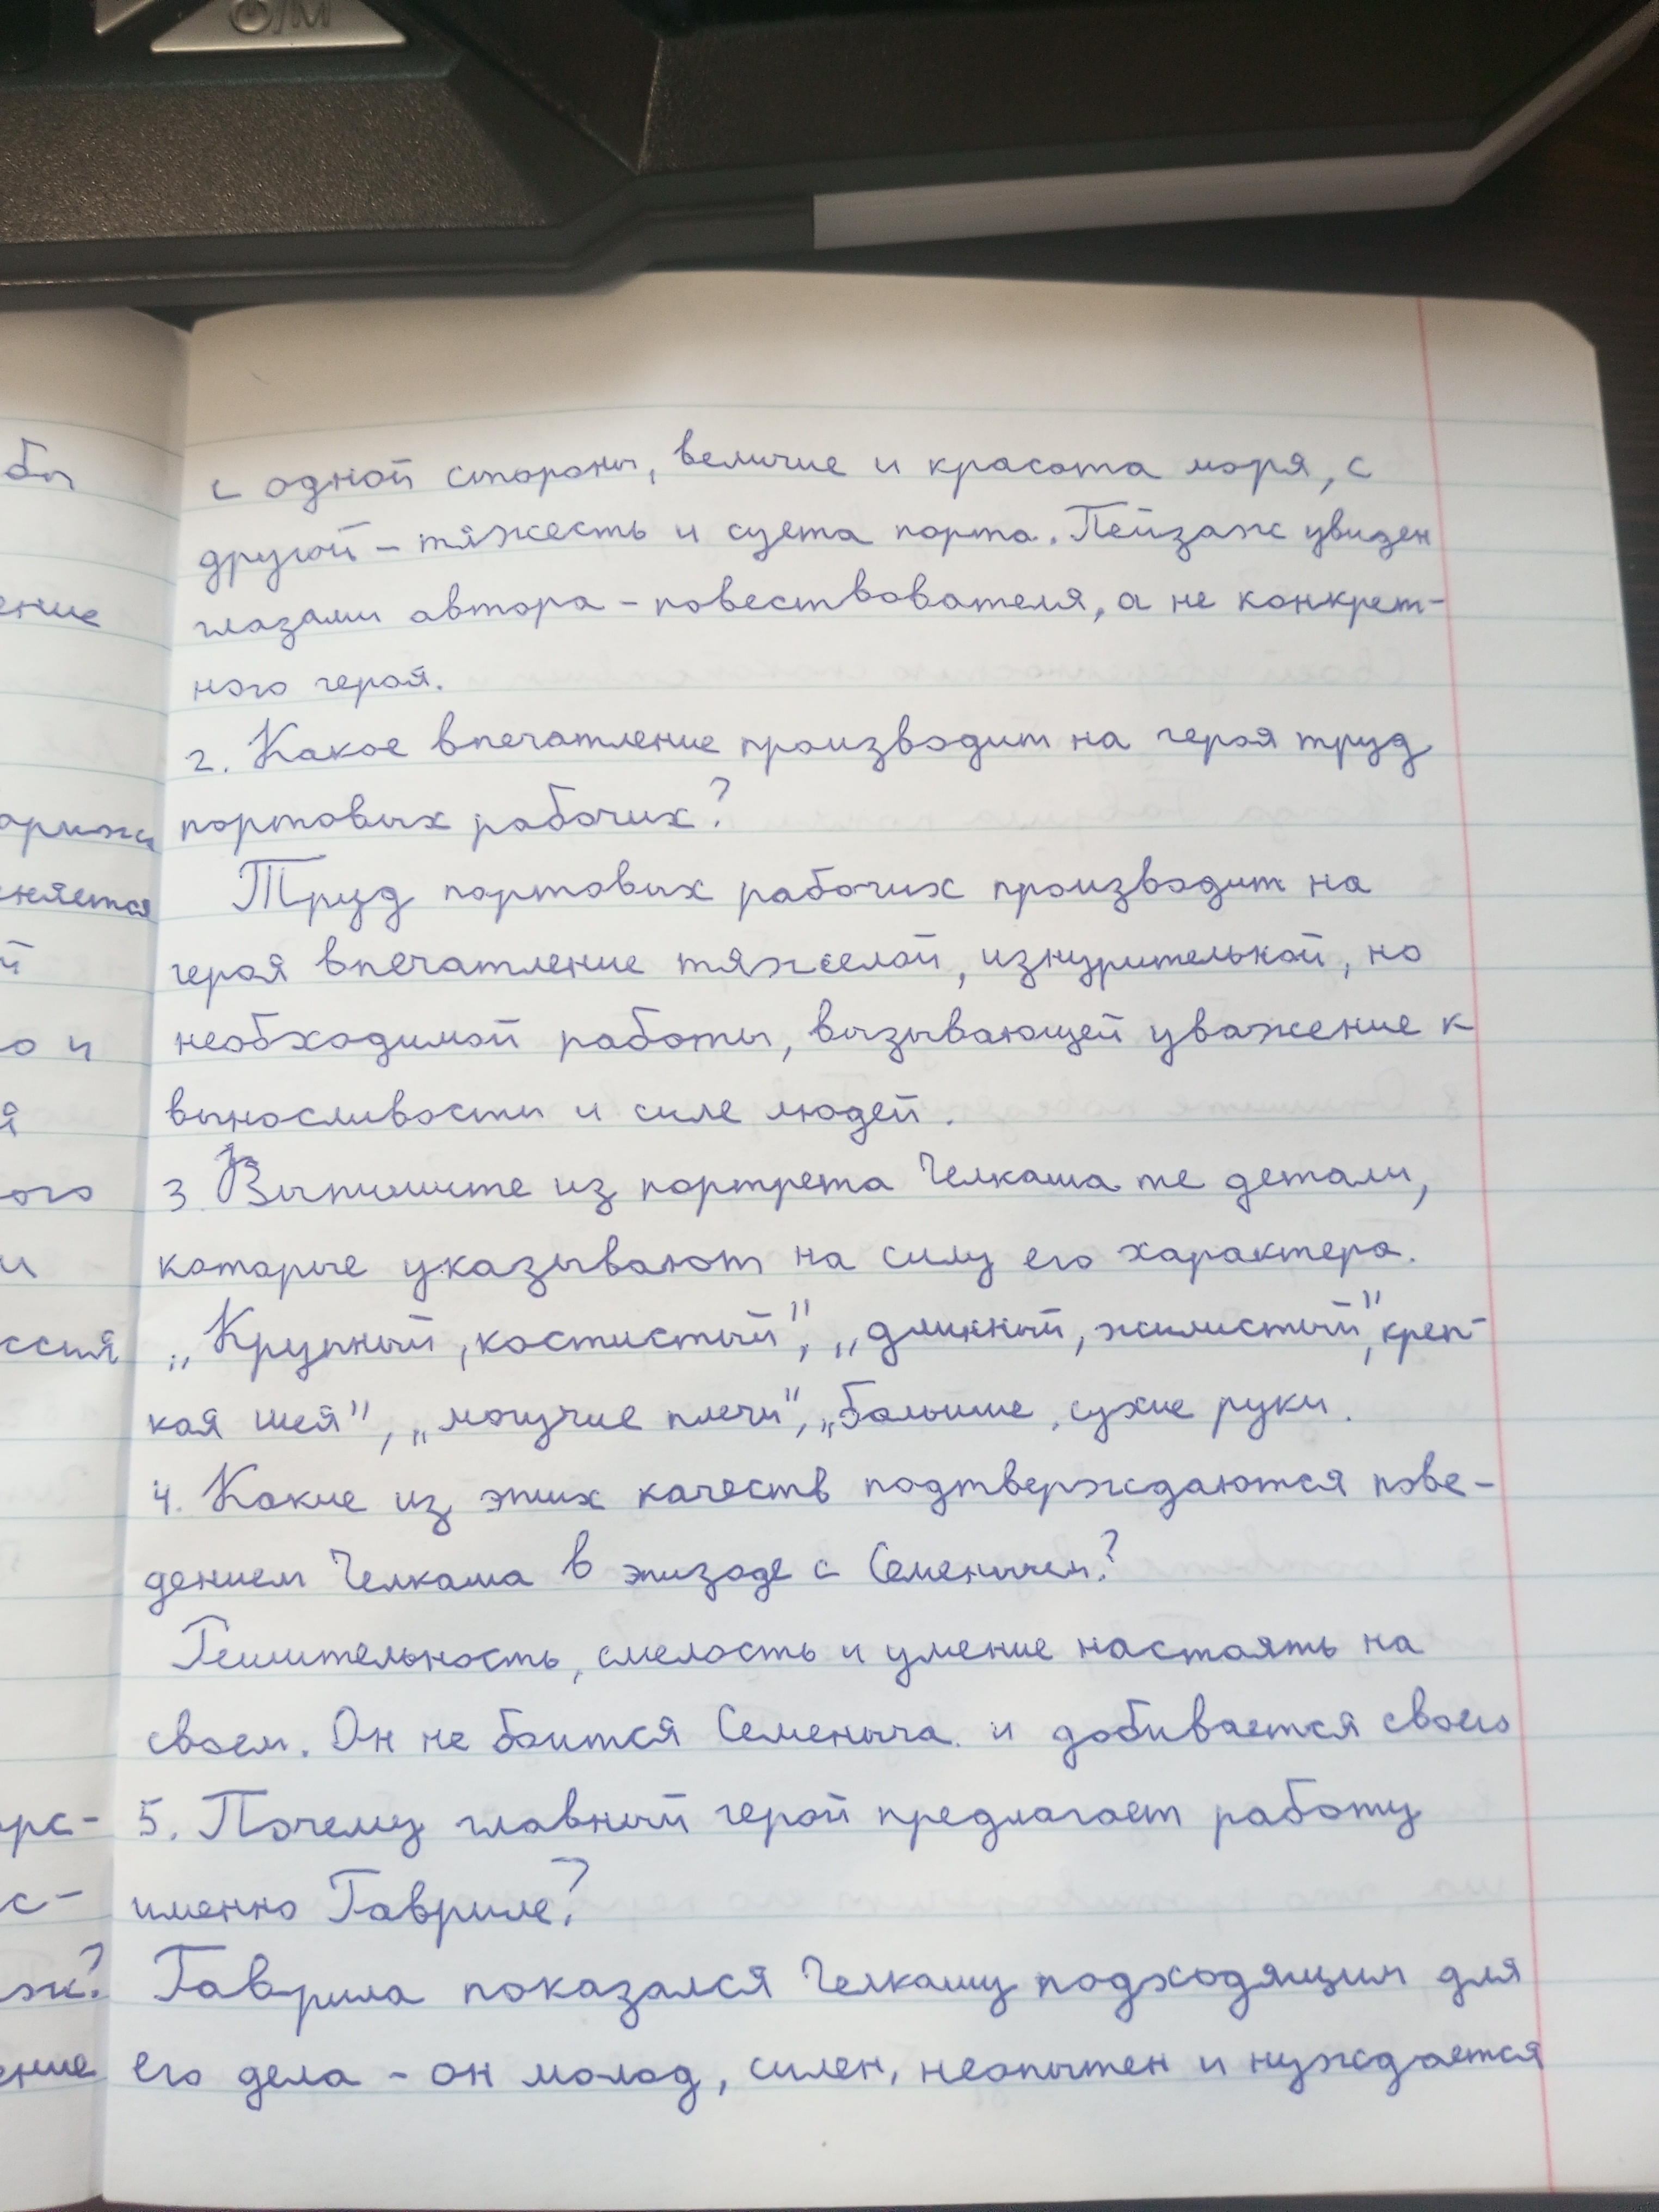 O/M
бы
ение
еняется
й
о и
я
ого
и
ссия
с-
ж?
ение
с одной стороны, величие и красота моря, с
другой - тяжесть и суета порта. Пейзаж увиден
глазами автора - повествователя, а не конкрет-
ного героя.
2. Какое впечатление производит на героя труд
портовых рабочих?
Труд портовых рабочих производит на
героя впечатление тяжелой, изнурительной, но
необходимой работы, вызывающей уважение к
выносливости и силе людей.
3. Выпишите из портрета Челкаша те детали,
которые указывают на силу его характера.
„Крупный, костистый", „длинный, жилистый", креп-
кая шея", „могучие плечи", „большие, сухие руки.
4. Какие из этих качеств подтверждаются пове-
дением Челкаша в эпизоде с Семенычем?
Решительность, смелость и умение настоять на
своем. Он не боится Семеныча и добивается своего
5. Почему главный герой предлагает работу
именно Гавриле?
Гаврила показался Челкашу подходящим для
его дела - он молод, силен, неопытен и нуждается